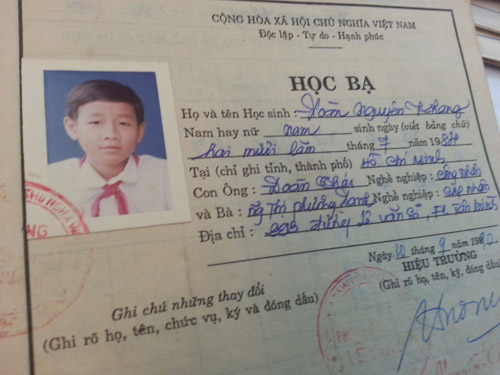 CỘNG HÒA XÃ HỘI CHỦ NGHĨA VIỆT NAM
Độc lập - Tự do - Hạnh phúc
HỌC BẠ
Họ và tên Học sinh : Đoàn Nguyên Khang
Nam hay nữ nam sinh ngày (viết bằng chữ)
hai mươi lăm tháng 7 năm 198
Tại (chỉ ghi tỉnh, thành phố) Hồ Chí Minh
Con Ông : Đoàn Nghề nghiệp : công nhân
và Bà : Ng Thị Phương Nghề nghiệp :
Địa chỉ : đường Lê Văn Sĩ, Tân Bình
Ngày tháng 9 năm 199
HIỆU TRƯỞNG
(Ghi rõ họ, tên, ký, đóng dấu)
Ghi chú những thay đổi
(Ghi rõ họ, tên, chức vụ, ký và đóng dấu)